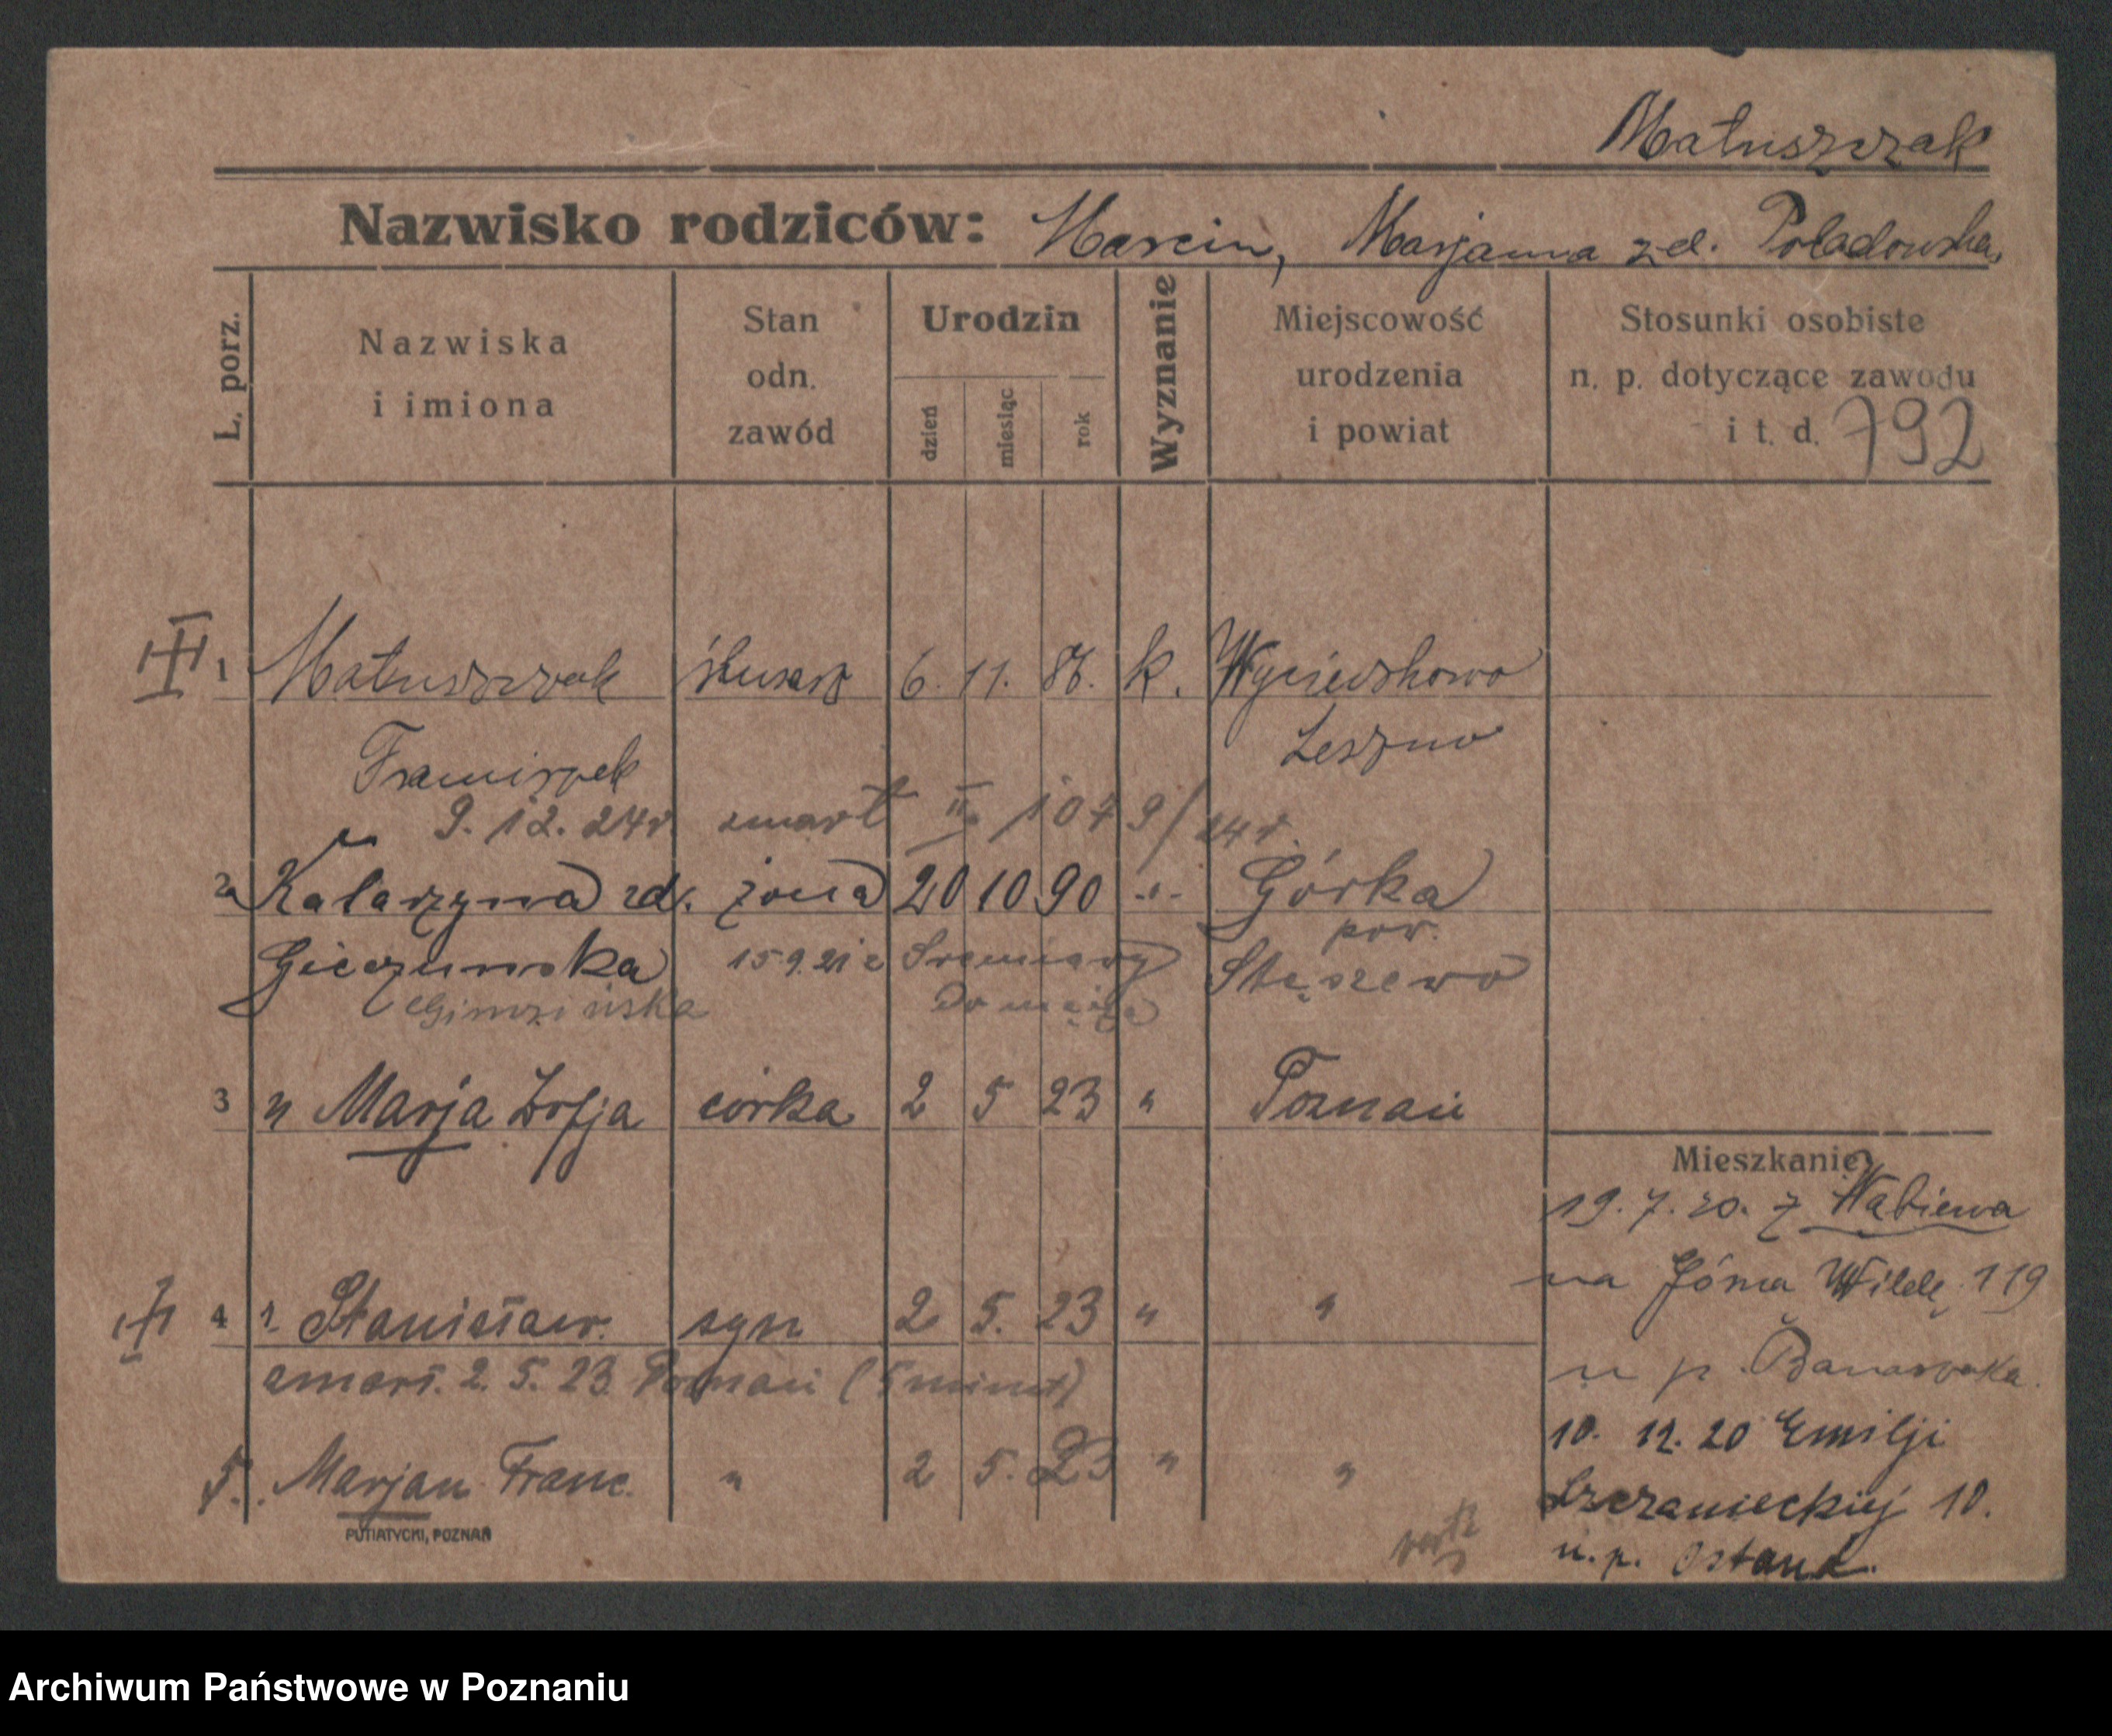 Matuszczak
Nazwisko rodziców: Marcin, Marjanna zd. Poladowska
L. porz.
Nazwiska
i imiona
Stan
odn.
zawód
Urodzin
dzień
miesiąc
rok
Wyznanie
Miejscowość
urodzenia
i powiat
Stosunki osobiste
n. p. dotyczące zawodu
i t. d. 792
1 Matuszczak ślusarz 6. 11. 87. k.
Franciszek Leszno
9. 12. 24r. zmarł II 1079/24r.
2 Katarzyna zd. żona 20 10 90 -"- Górka
pow.
15.9.21 z Śremiany Stęszewo
do męża
3 " Marja Zofja córka 2 5 23 " Poznań
Mieszkanie
19. 7. 20. z
na Górna Wildę 119
4 " Stanisław syn 2 5. 23 " "
zmarł. 2. 5. 23. Poznań (5 minut)
u p.
10. 12. 20 Emilji
Szczanieckiej 10.
u. p.
5. Marjan Franc. " 2 5. 23 " "
verte
PUTIATYCKI, POZNAŃ
Archiwum Państwowe w Poznaniu